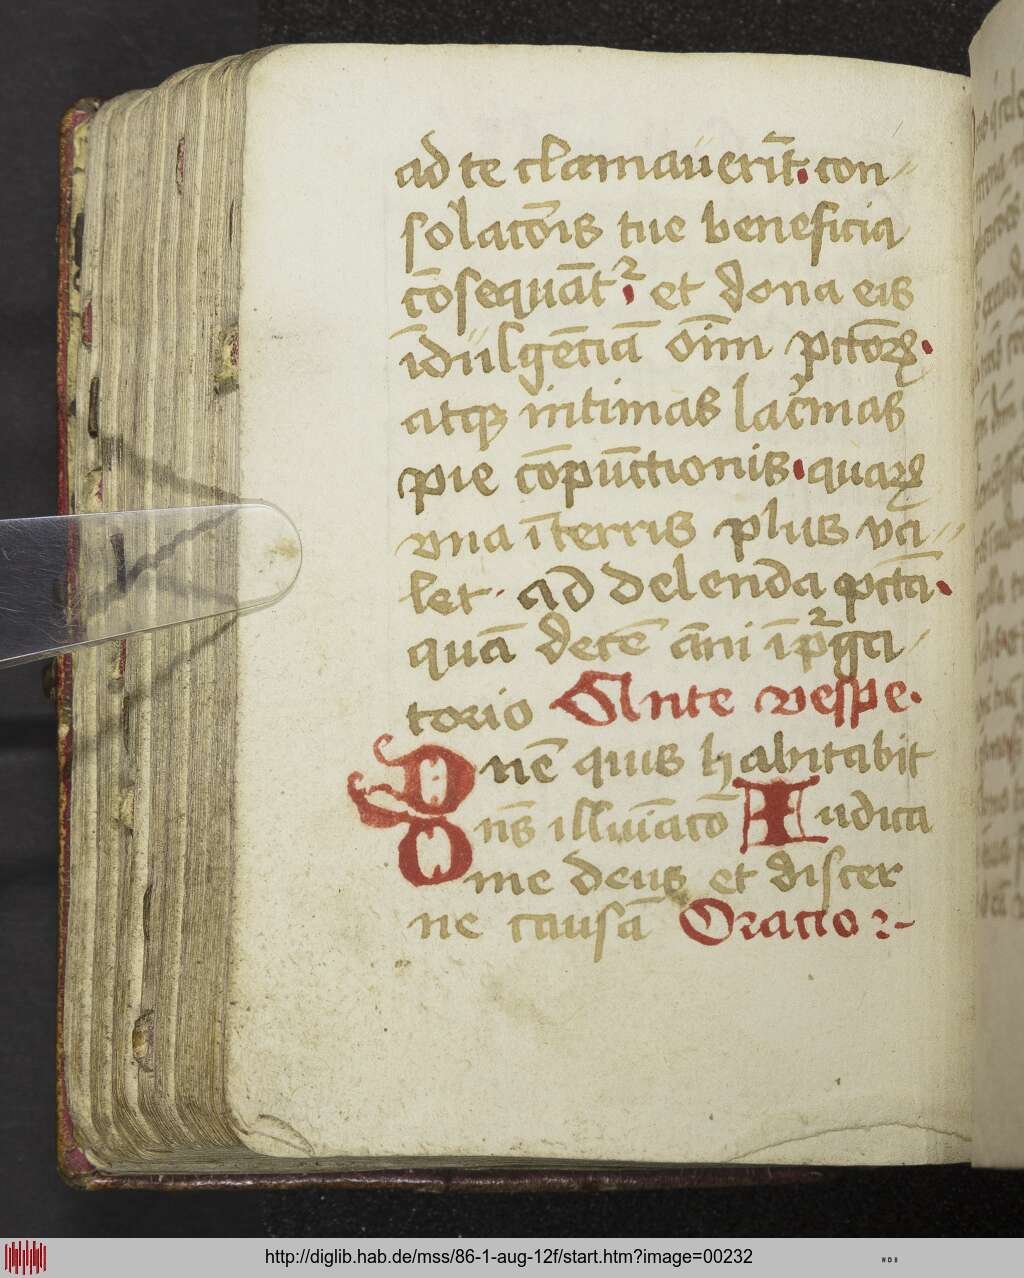 ad te clamauerīt. con
solacōis tue beneficia
cōsequāt᷑. et dona eis
īdulgēciā oīm pctōꝝ.
atqꝫ intimas lac̄mas
pie cōpūctionis. quaꝝ
vna ī terris plus va
let. ad delenda pctā.
quā decē āni ī p̲᷑ga
torio Ante vespe.
Dnē quis habitabit
Dn̄s illuīacō Iudica
me deus et discer
ne causā Oracio
http://diglib.hab.de/mss/86-1-aug-12f/start.htm?image=00232